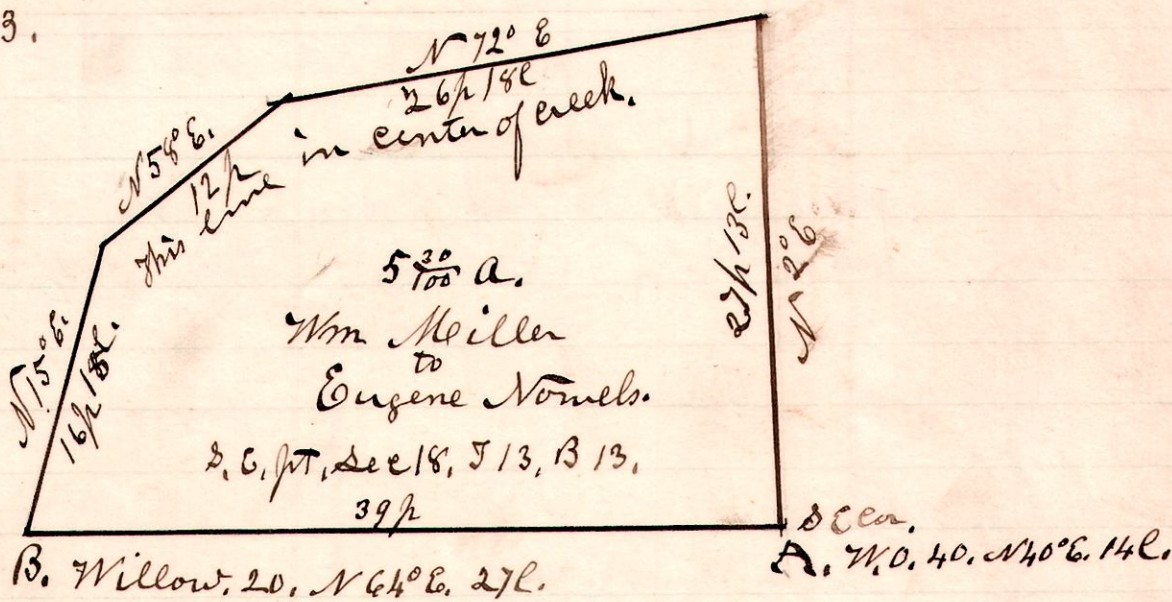 3.
N 72° E
26p 18l
N 58° E.
12p
This line in center of creek.
N 15° E.
16p 18l.
27p 13l.
N 2° E.
5 30/100 A.
Wm Miller
to
Eugene Nowels.
S. E. pt, Sec 18, T 13, B 13,
39p
S E Cor.
B. Willow. 20. N 64° E. 27l.
A. W.O. 40. N 40° E. 14l.